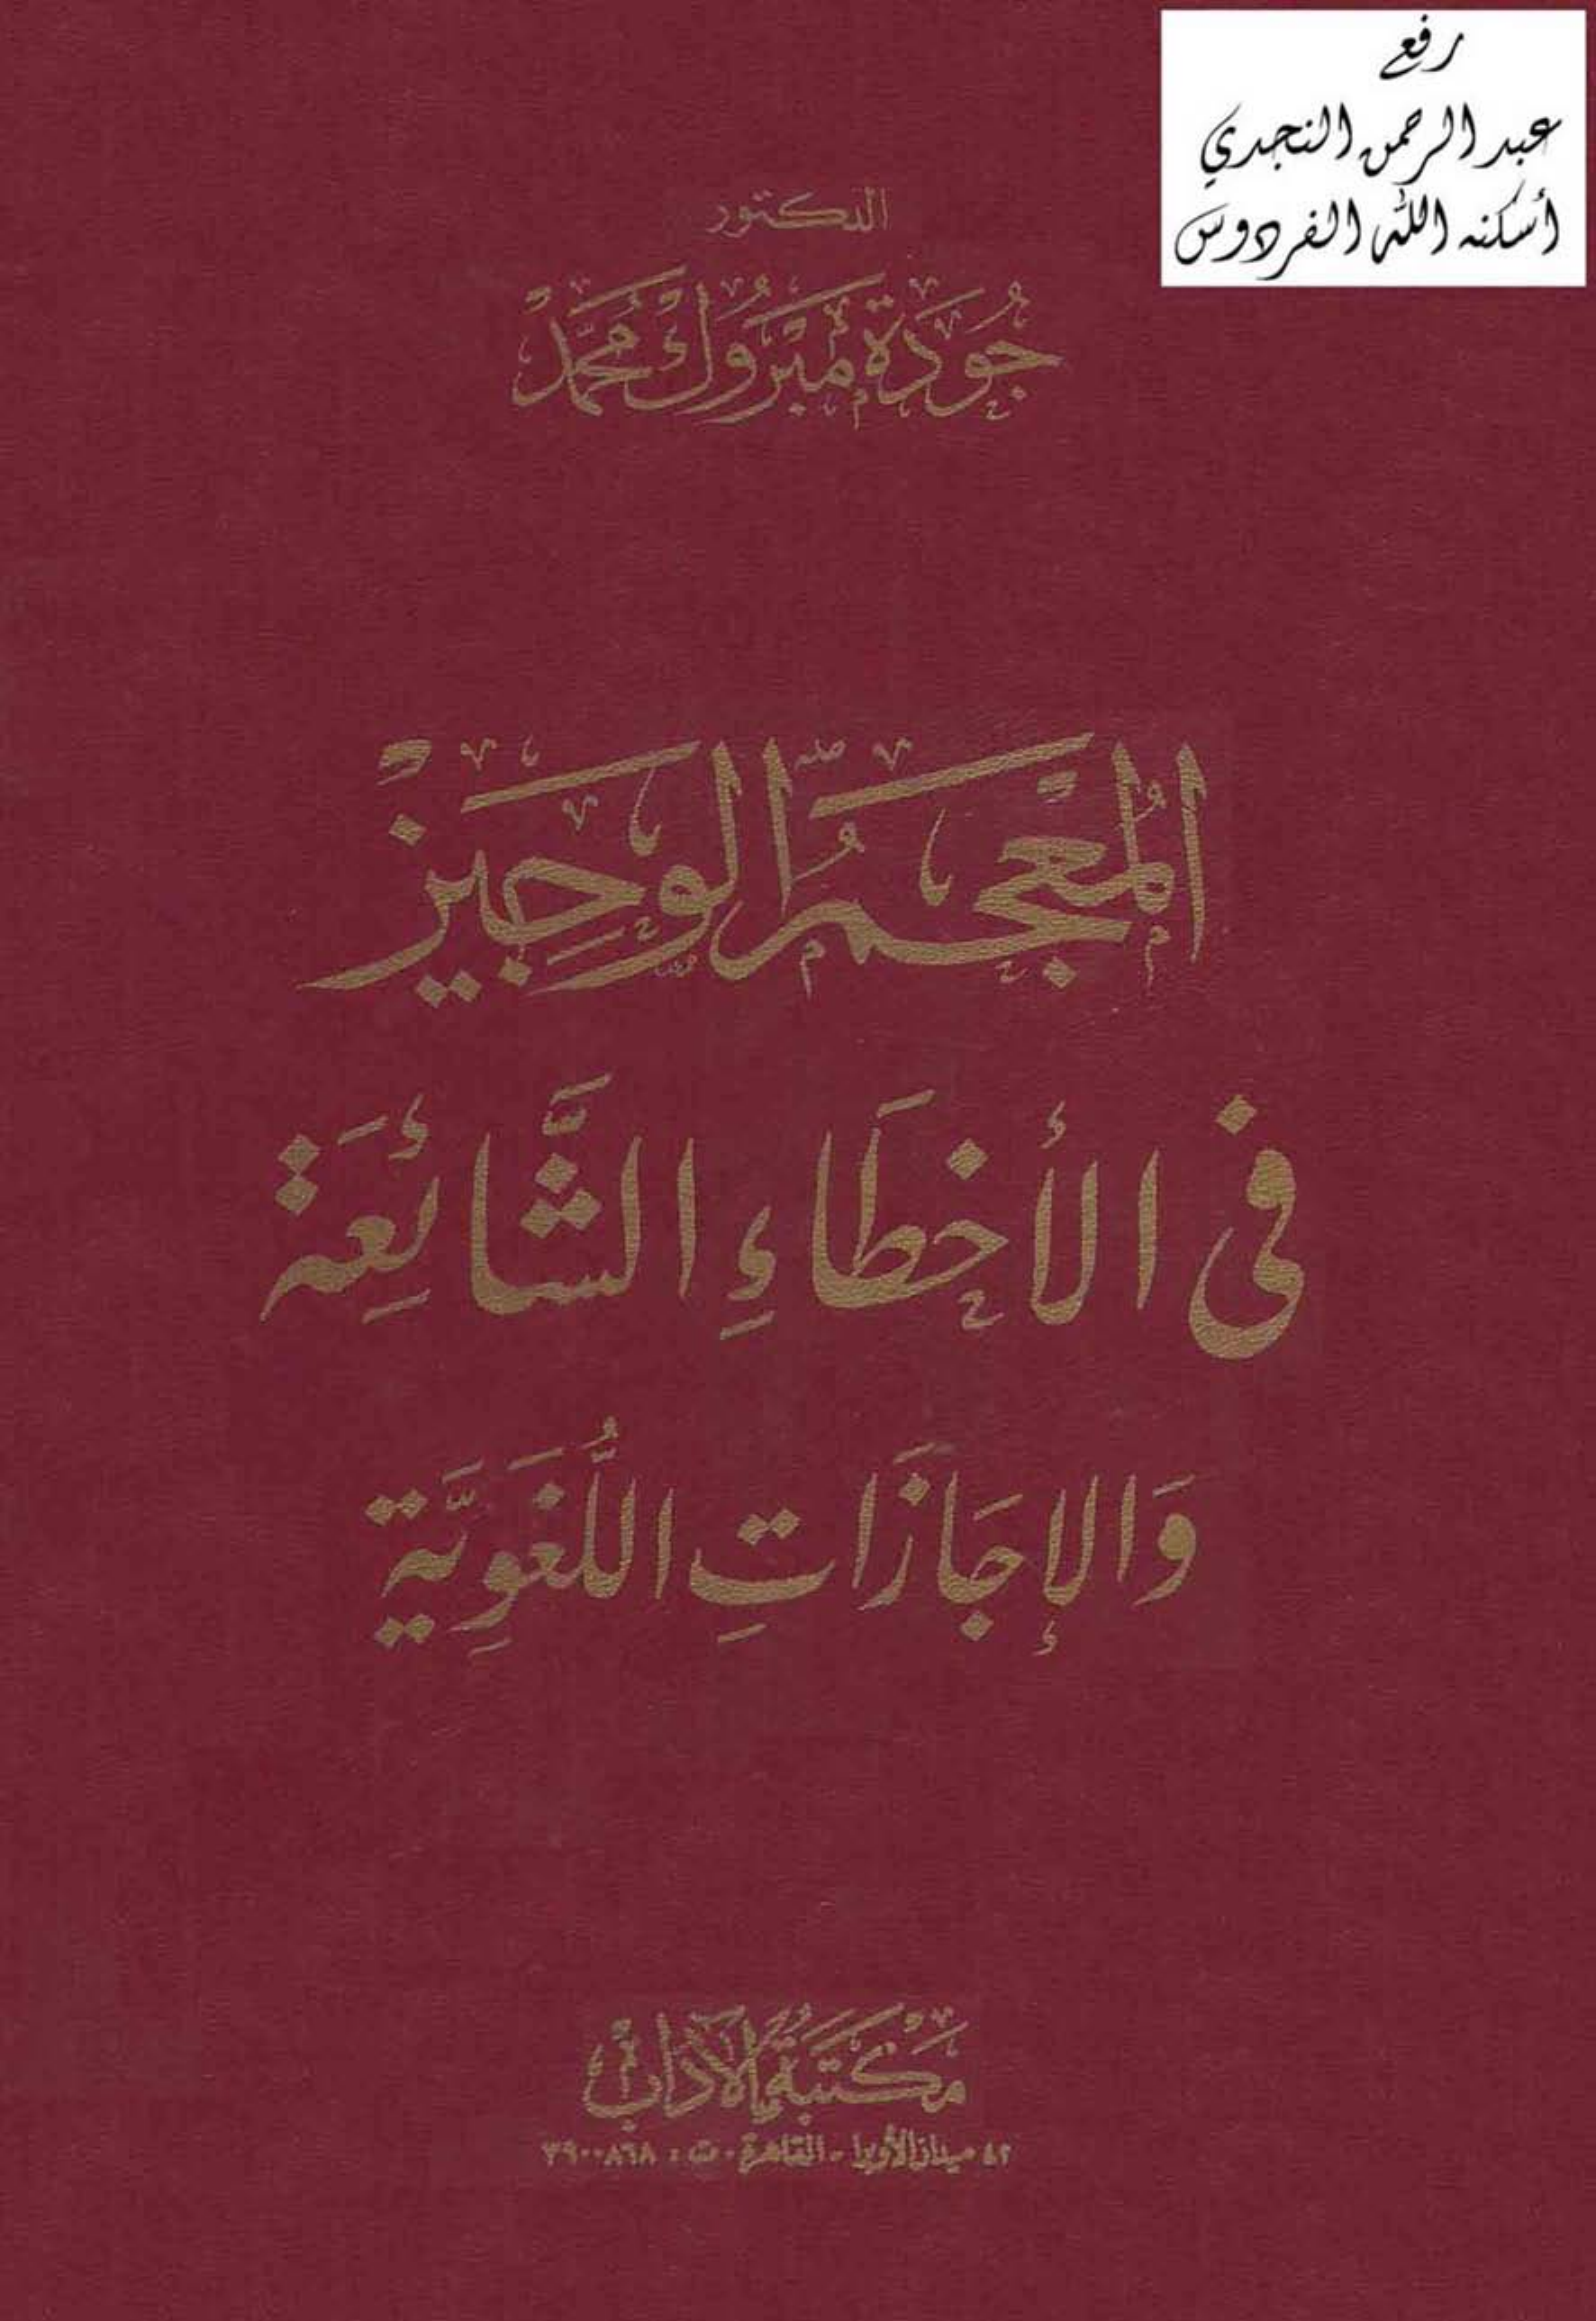 رفع
عبد الرحمن النجدي
أسكنه الله الفردوس
الدكتور
جُودَة مَبْرُوك مُحَمَّد
المُعْجَمُ الوَجِيزْ
فى الأَخطَاءِ الشَّائِعَة
وَالإجَازَاتِ اللُّغَوِيَّة
مكتبة الآداب
٤٢ ميدان الأوبرا - القاهرة - ت : ٣٩٠٠٨٦٨